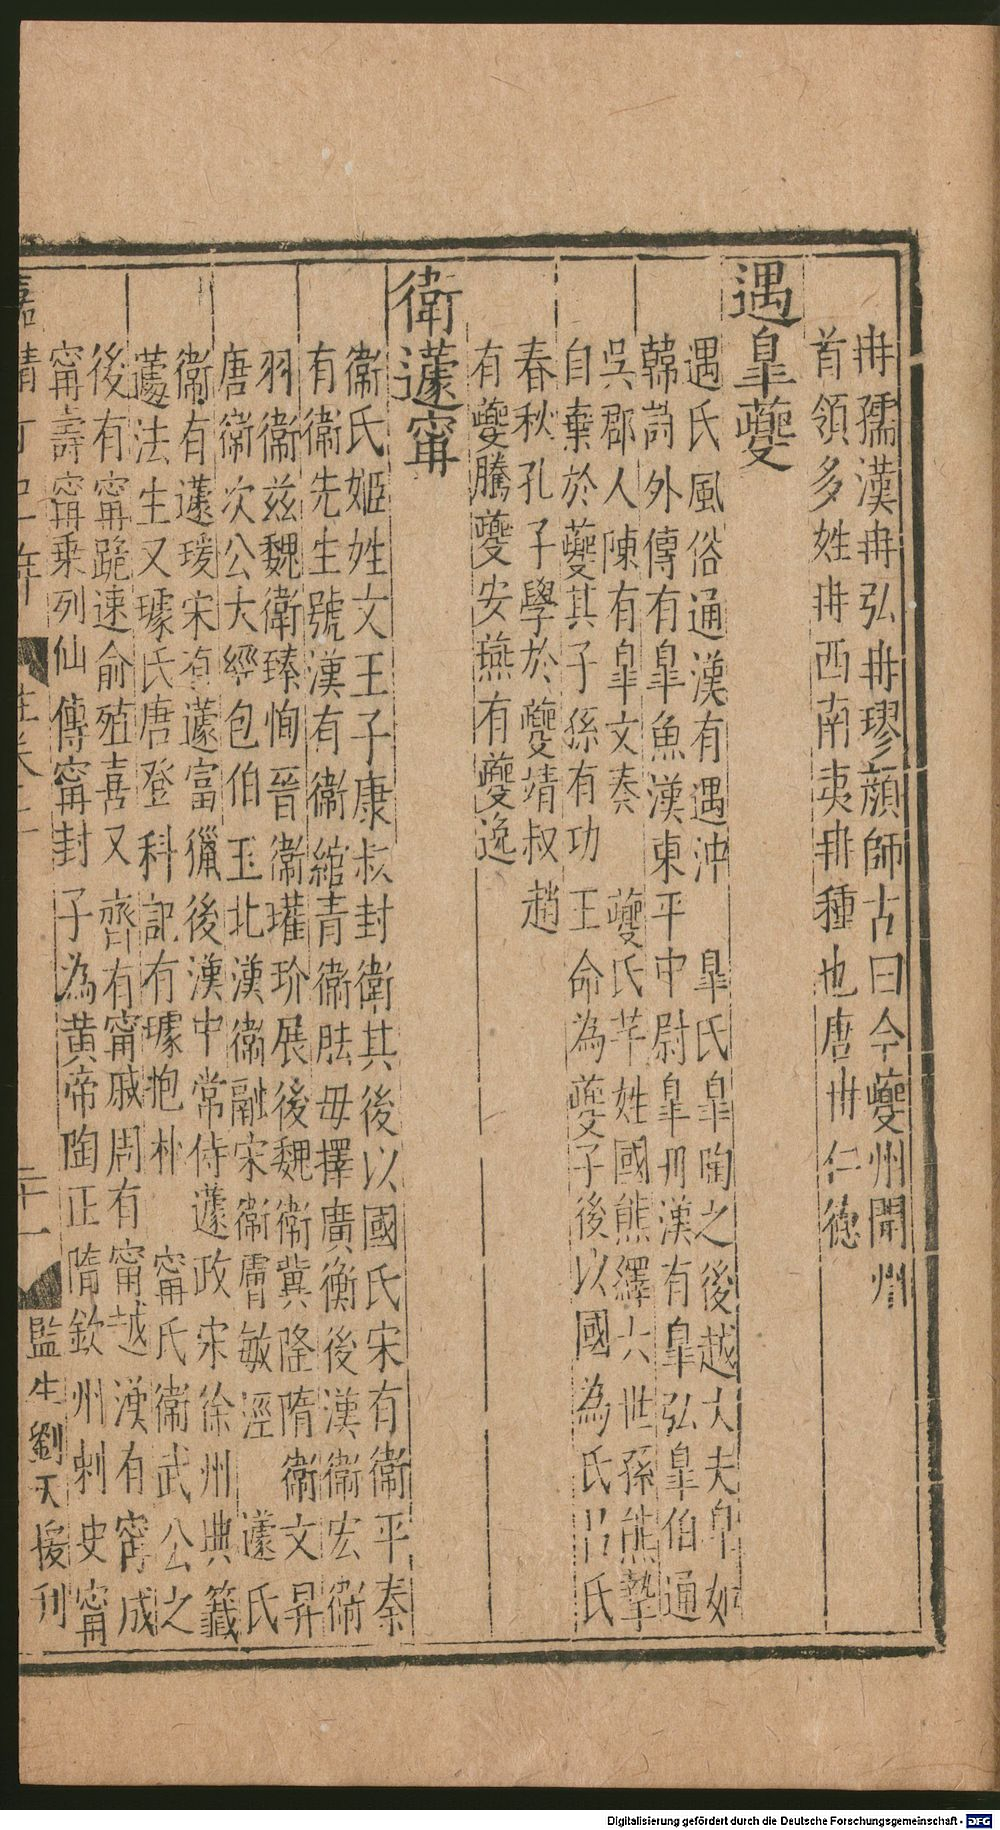 冉孺漢冉弘冉璆顏師古曰今夔州開州
首領多姓冉西南夷冉種也唐冉仁德
遇皐夔
遇氏風俗通漢有遇沖 皐氏皐陶之後越大夫皐如
韓詩外傳有皐魚漢東平中尉皐冉漢有皐弘皐伯通
吳郡人陳有皐文奏 夔氏芊姓國熊繹六世孫熊摯
自棄於夔其子孫有功王命為夔子後以國為氏呂氏
春秋孔子學於夔靖叔趙
有夔騰夔安燕有夔逸
衛蘧甯
衞氏姬姓文王子康叔封衛其後以國氏宋有衞平秦
有衞先生號漢有衞綰青衞胠毋擇廣衡後漢衞宏衞
羽衞茲魏衛臻恂晉衞瓘玠展後魏衞冀隆隋衞文昇
唐衞次公大經包伯玉北漢衞融宋衞膚敏涇 蘧氏
衞有蘧瑗宋有蘧富獵後漢中常侍蘧政宋徐州典籤
蘧法生又璩氏唐登科記有璩抱朴 甯氏衞武公之
後有甯跪速俞殖喜又齊有甯戚周有甯越漢有甯成
甯壽甯乘列仙傳甯封子為黃帝陶正隋欽州刺史甯
嘉靖丁巳年 二十一 監生劉天授刊
Digitalisierung gefördert durch die Deutsche Forschungsgemeinschaft - DFG